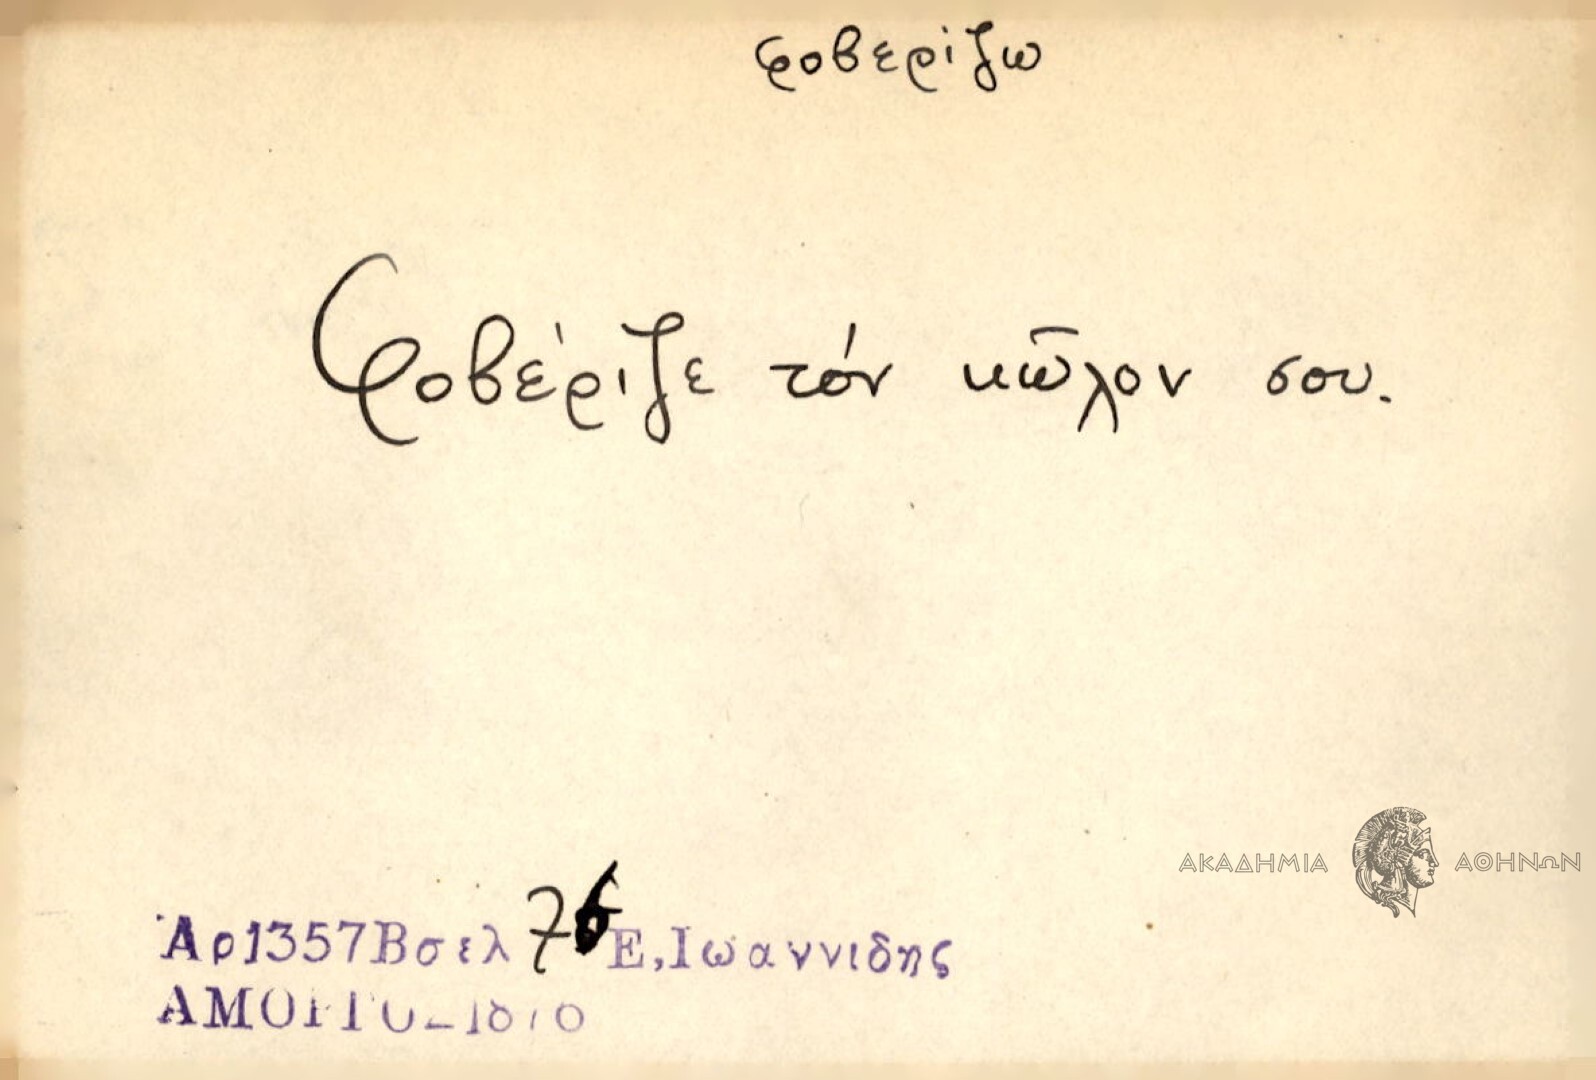 φοβερίζω
Φοβέριζε τόν κῶλον σου.
ΑΚΑΔΗΜΙΑ ΑΘΗΝΩΝ
Αρ1357Βσελ 76 Ε,Ιωαννιδης